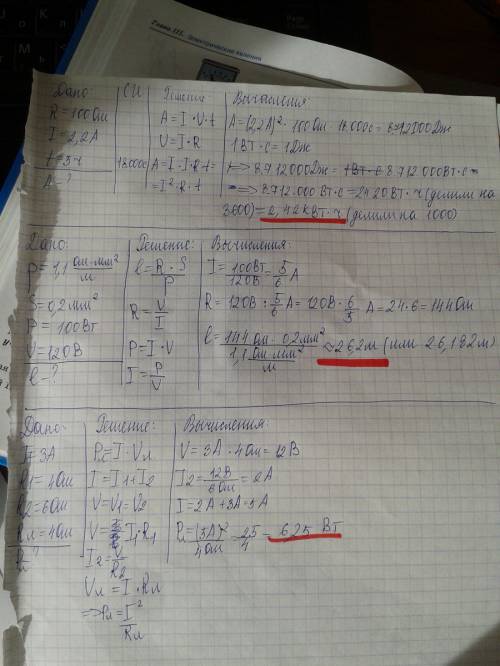 Глава III. Электрические явления
Дано:
R = 100 Ом
I = 2,2А
t = 3ч
A = ?
СИ
18.000с
Решение
A = I · V · t
V = I · R
A = I · I · R · t =
= I² · R · t
Вычисления:
A = (2,2А)² · 100 Ом · 18.000с = 8.712000 Дж
1 Вт · с = 1 Дж
=> 8.712000 Дж = 8.712.000 Вт · с
=> 8.712.000 Вт · с = 2420 Вт · ч (делили на
3600) = 2,42 кВт · ч (делили на 1000)
Дано:
ρ = 1,1 Ом·мм²/м
S = 0,2 мм²
P = 100 Вт
V = 120 В
l = ?
Решение:
l = R · S / ρ
R = V / I
P = I · V
I = P / V
Вычисления:
I = 100 Вт / 120 В = 5/6 А
R = 120 В : 5/6 А = 120 В · 6/5 А = 24 · 6 = 144 Ом
l = 144 Ом · 0,2 мм² / 1,1 Ом·мм²/м ≈ 26,2 м (или 26,182 м)
Дано:
I1 = 3А
R1 = 4 Ом
R2 = 6 Ом
Rл = 4 Ом
Pл ?
Решение:
Pл = I · Vл
I = I1 + I2
V = V1 = V2
V = I1 · R1
I2 = V / R2
Vл = I · Rл
=> Pл = I² / Rл
Вычисления:
V = 3А · 4 Ом = 12 В
I2 = 12 В / 6 Ом = 2 А
I = 2 А + 3А = 5 А
Pл = (5А)² / 4 Ом = 25/4 = 6,25 Вт